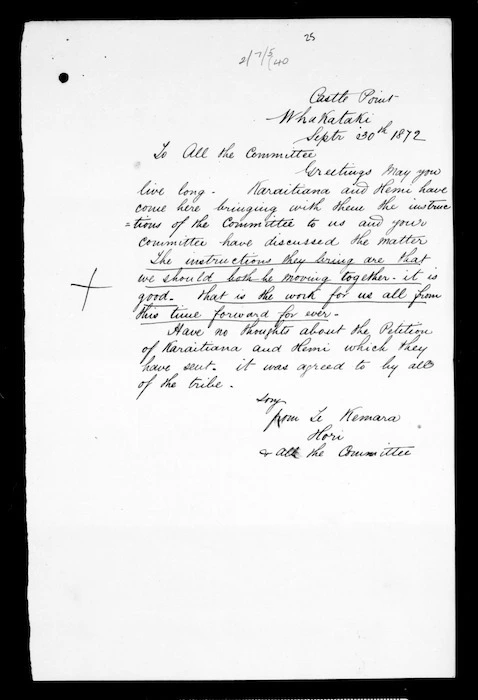 25
2/7/5/40
Castle Point
Whakataki
Septr 30th 1872
To All the Committee
Greetings may you
live long - Karaitiana and Hemi have
come here bringing with them the instruc
=tions of the Committee to us and your
committee have discussed the matter
The instructions they bring are that
we should both be moving together - it is
good - that is the work for us all from
this time forward for ever -
Have no thoughts about the Petition
of Karaitiana and Hemi which they
have sent - it was agreed to by all
of the tribe -
from Te Kemara
Hori
& all the Committee